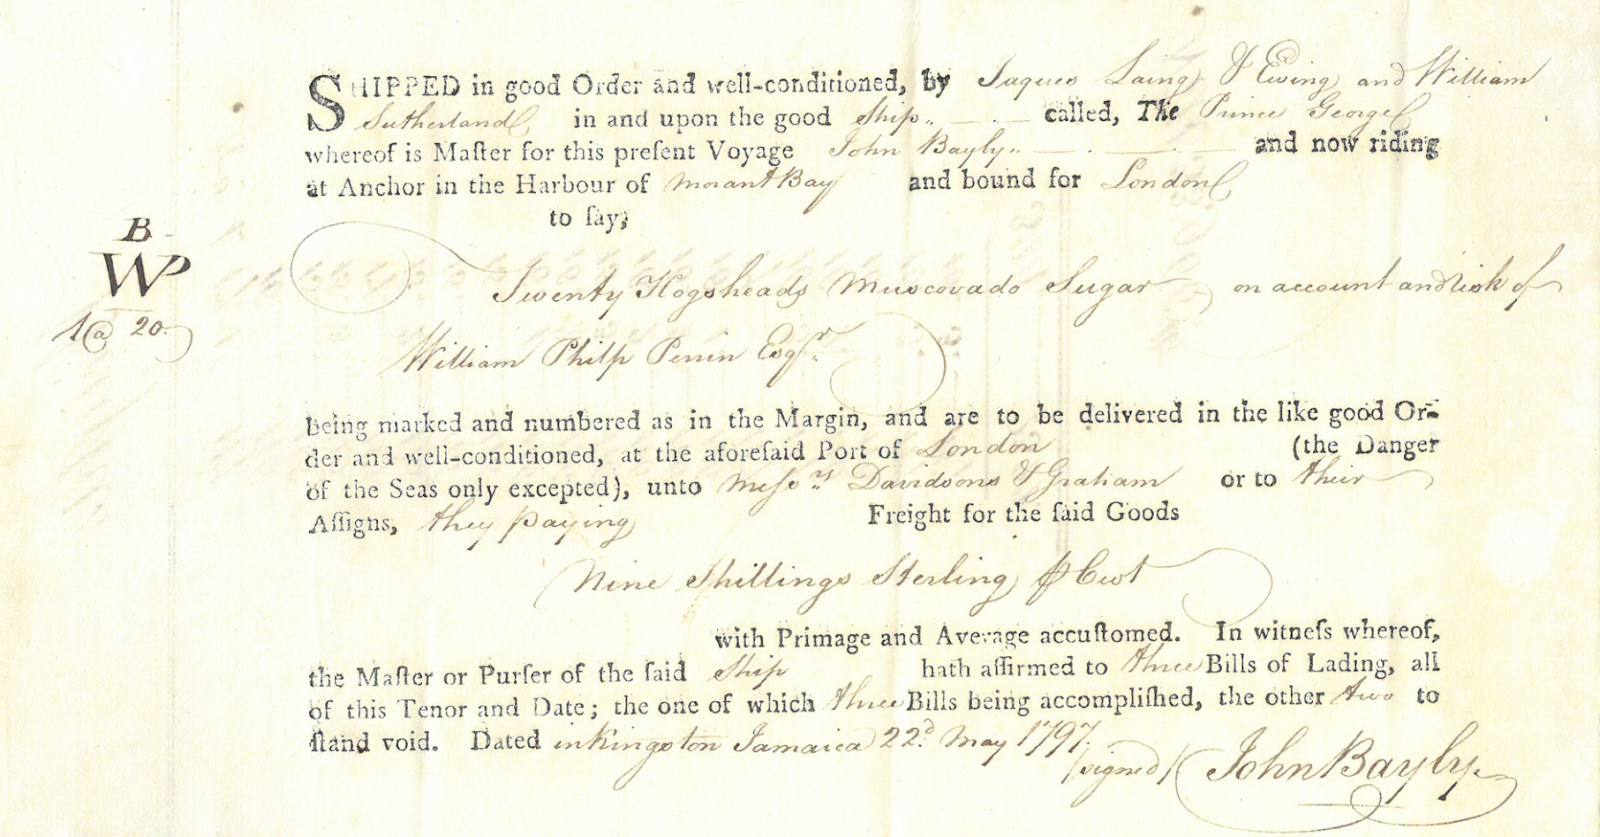 SHIPPED in good Order and well-conditioned, by Jaques Laing & Ewing and William
Sutherland in and upon the good Ship called, The Prince George
whereof is Maſter for this preſent Voyage John Bayly and now riding
at Anchor in the Harbour of Morant Bay and bound for London
to ſay;
B
WP
1 @ 20
Twenty Hogsheads Muscovado Sugar on account and risk of
William Philp Perrin Esqr.
being marked and numbered as in the Margin, and are to be delivered in the like good Or-
der and well-conditioned, at the aforeſaid Port of London (the Danger
of the Seas only excepted), unto Meſsrs. Davidsons & Graham or to their
Aſſigns, they paying Freight for the ſaid Goods
Nine Shillings Sterling ⅌ Cwt
with Primage and Average accuſtomed. In witneſs whereof,
the Maſter or Purſer of the ſaid Ship hath affirmed to three Bills of Lading, all
of this Tenor and Date; the one of which three Bills being accompliſhed, the other two to
ſtand void. Dated in Kingston Jamaica 22d. May 1797.
(signed) John Bayly